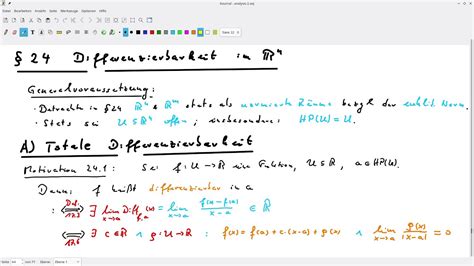 Xournal - analysis 2.xoj
Datei Bearbeiten Ansicht Journal Werkzeuge Optionen Hilfe
§ 24 Differenzierbarkeit im ℝⁿ
Generalvoraussetzung:
· Betrachte in § 24 ℝⁿ & ℝᵐ stets als normierte Räume bezgl. der eukl. Norm.
· Stets sei U ⊆ ℝⁿ offen, insbesondere HP(U) = U.
A) Totale Differenzierbarkeit
Motivation 24.1: Sei f: U → ℝ eine Funktion, U ⊆ ℝ, a ∈ HP(U).
Dann: f heißt differenzierbar in a
:⟺ (Def. 17.3) ∃ lim_{x→a} Diff_{f,a} = lim_{x→a} (f(x) - f(a))/(x - a) ∈ ℝ
⟺ ∃ c ∈ ℝ ∧ φ: U → ℝ : f(x) = f(a) + c·(x-a) + φ(x) ∧ lim_{x→a} φ(x)/|x-a| = 0
Ebene 1